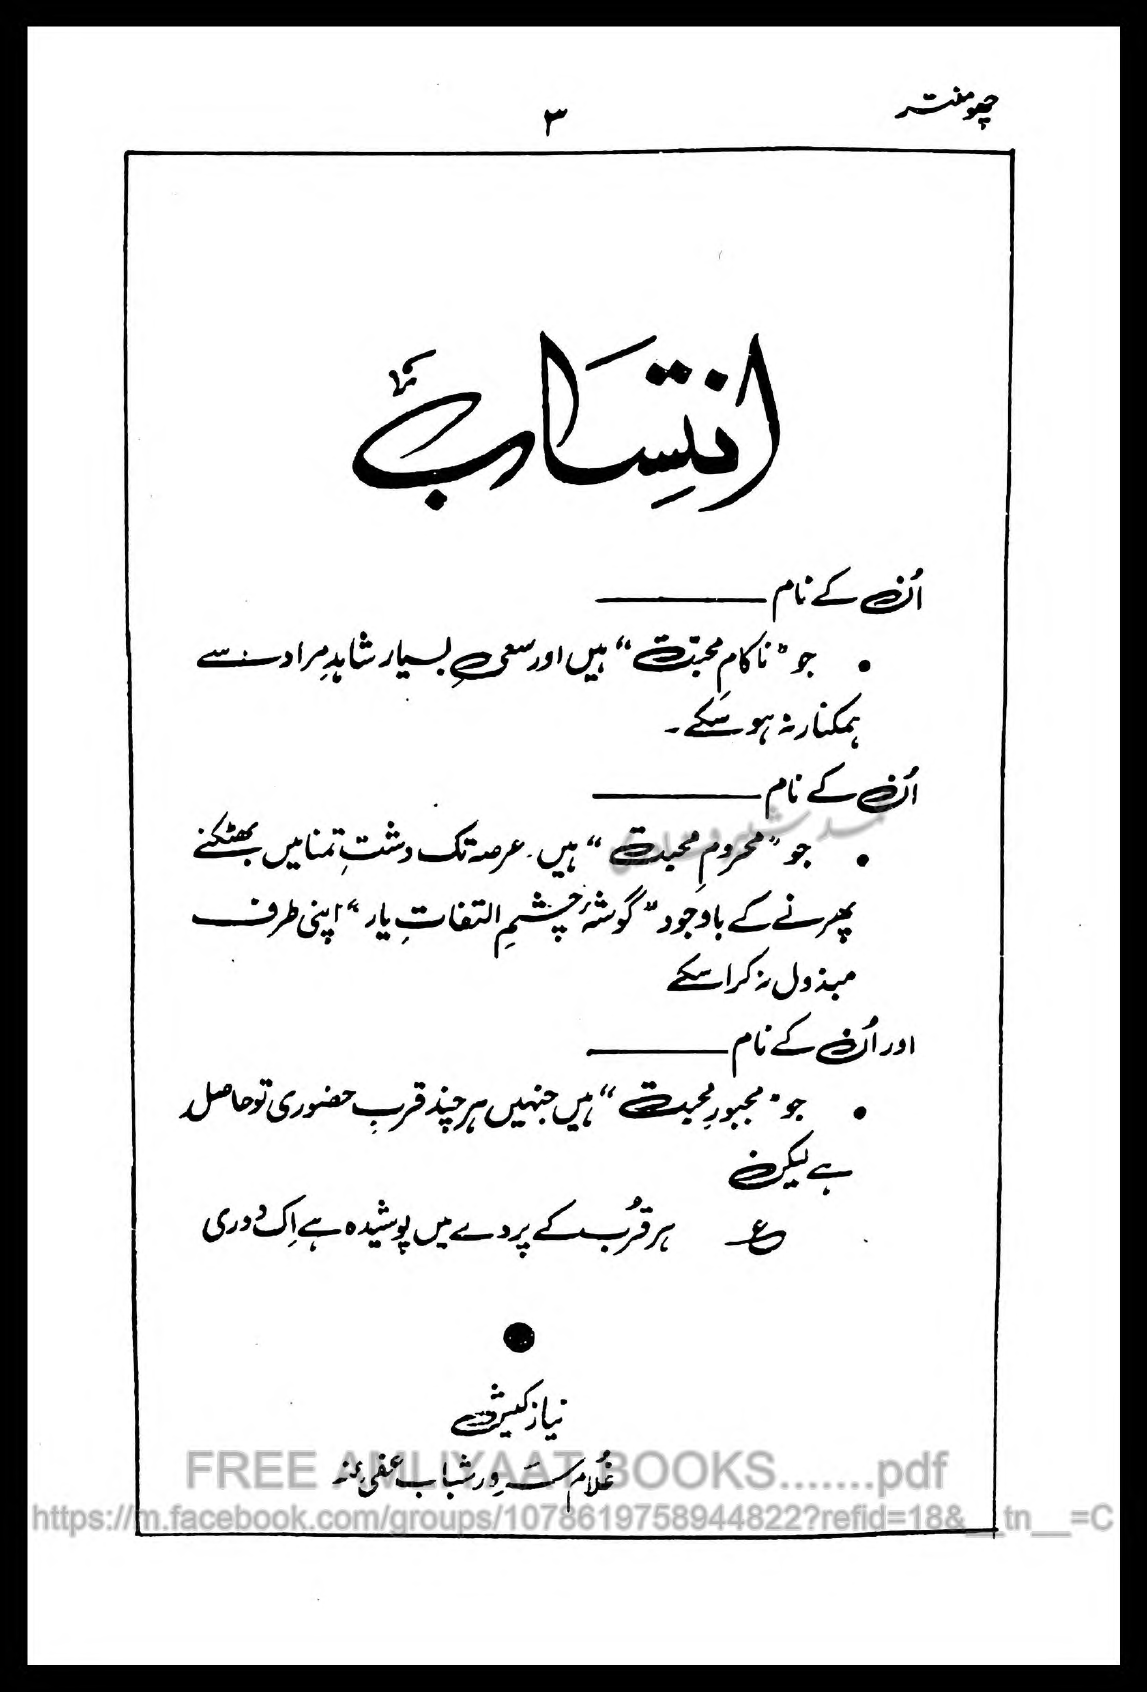 چھومنتر
۳
انتساب
اُن کے نام ـــــــــــــ
• جو "ناکامِ محبت" ہیں اور سعیِ بسیار شاہدِ مراد سے
ہمکنار نہ ہو سکے۔
اُن کے نام ـــــــــــــ
• جو "محرومِ محبت" ہیں۔ عرصہ تک دشتِ تمنا میں بھٹکتے
پھرنے کے باوجود "گوشۂ چشمِ التفاتِ یار" اپنی طرف
مبذول نہ کرا سکے
اور اُن کے نام ـــــــــــــ
• جو "مجبورِ محبت" ہیں جنہیں ہر چند قربِ حضوری تو حاصل
ہے لیکن
ع ہر قُرب کے پردے میں پوشیدہ ہے اِک دوری
نیاز کیش
غُلام سَرور شباب عفی عنہ
FREE AMLIYAAT BOOKS.......pdf
https://m.facebook.com/groups/1078619758944822?refid=18&__tn__=C